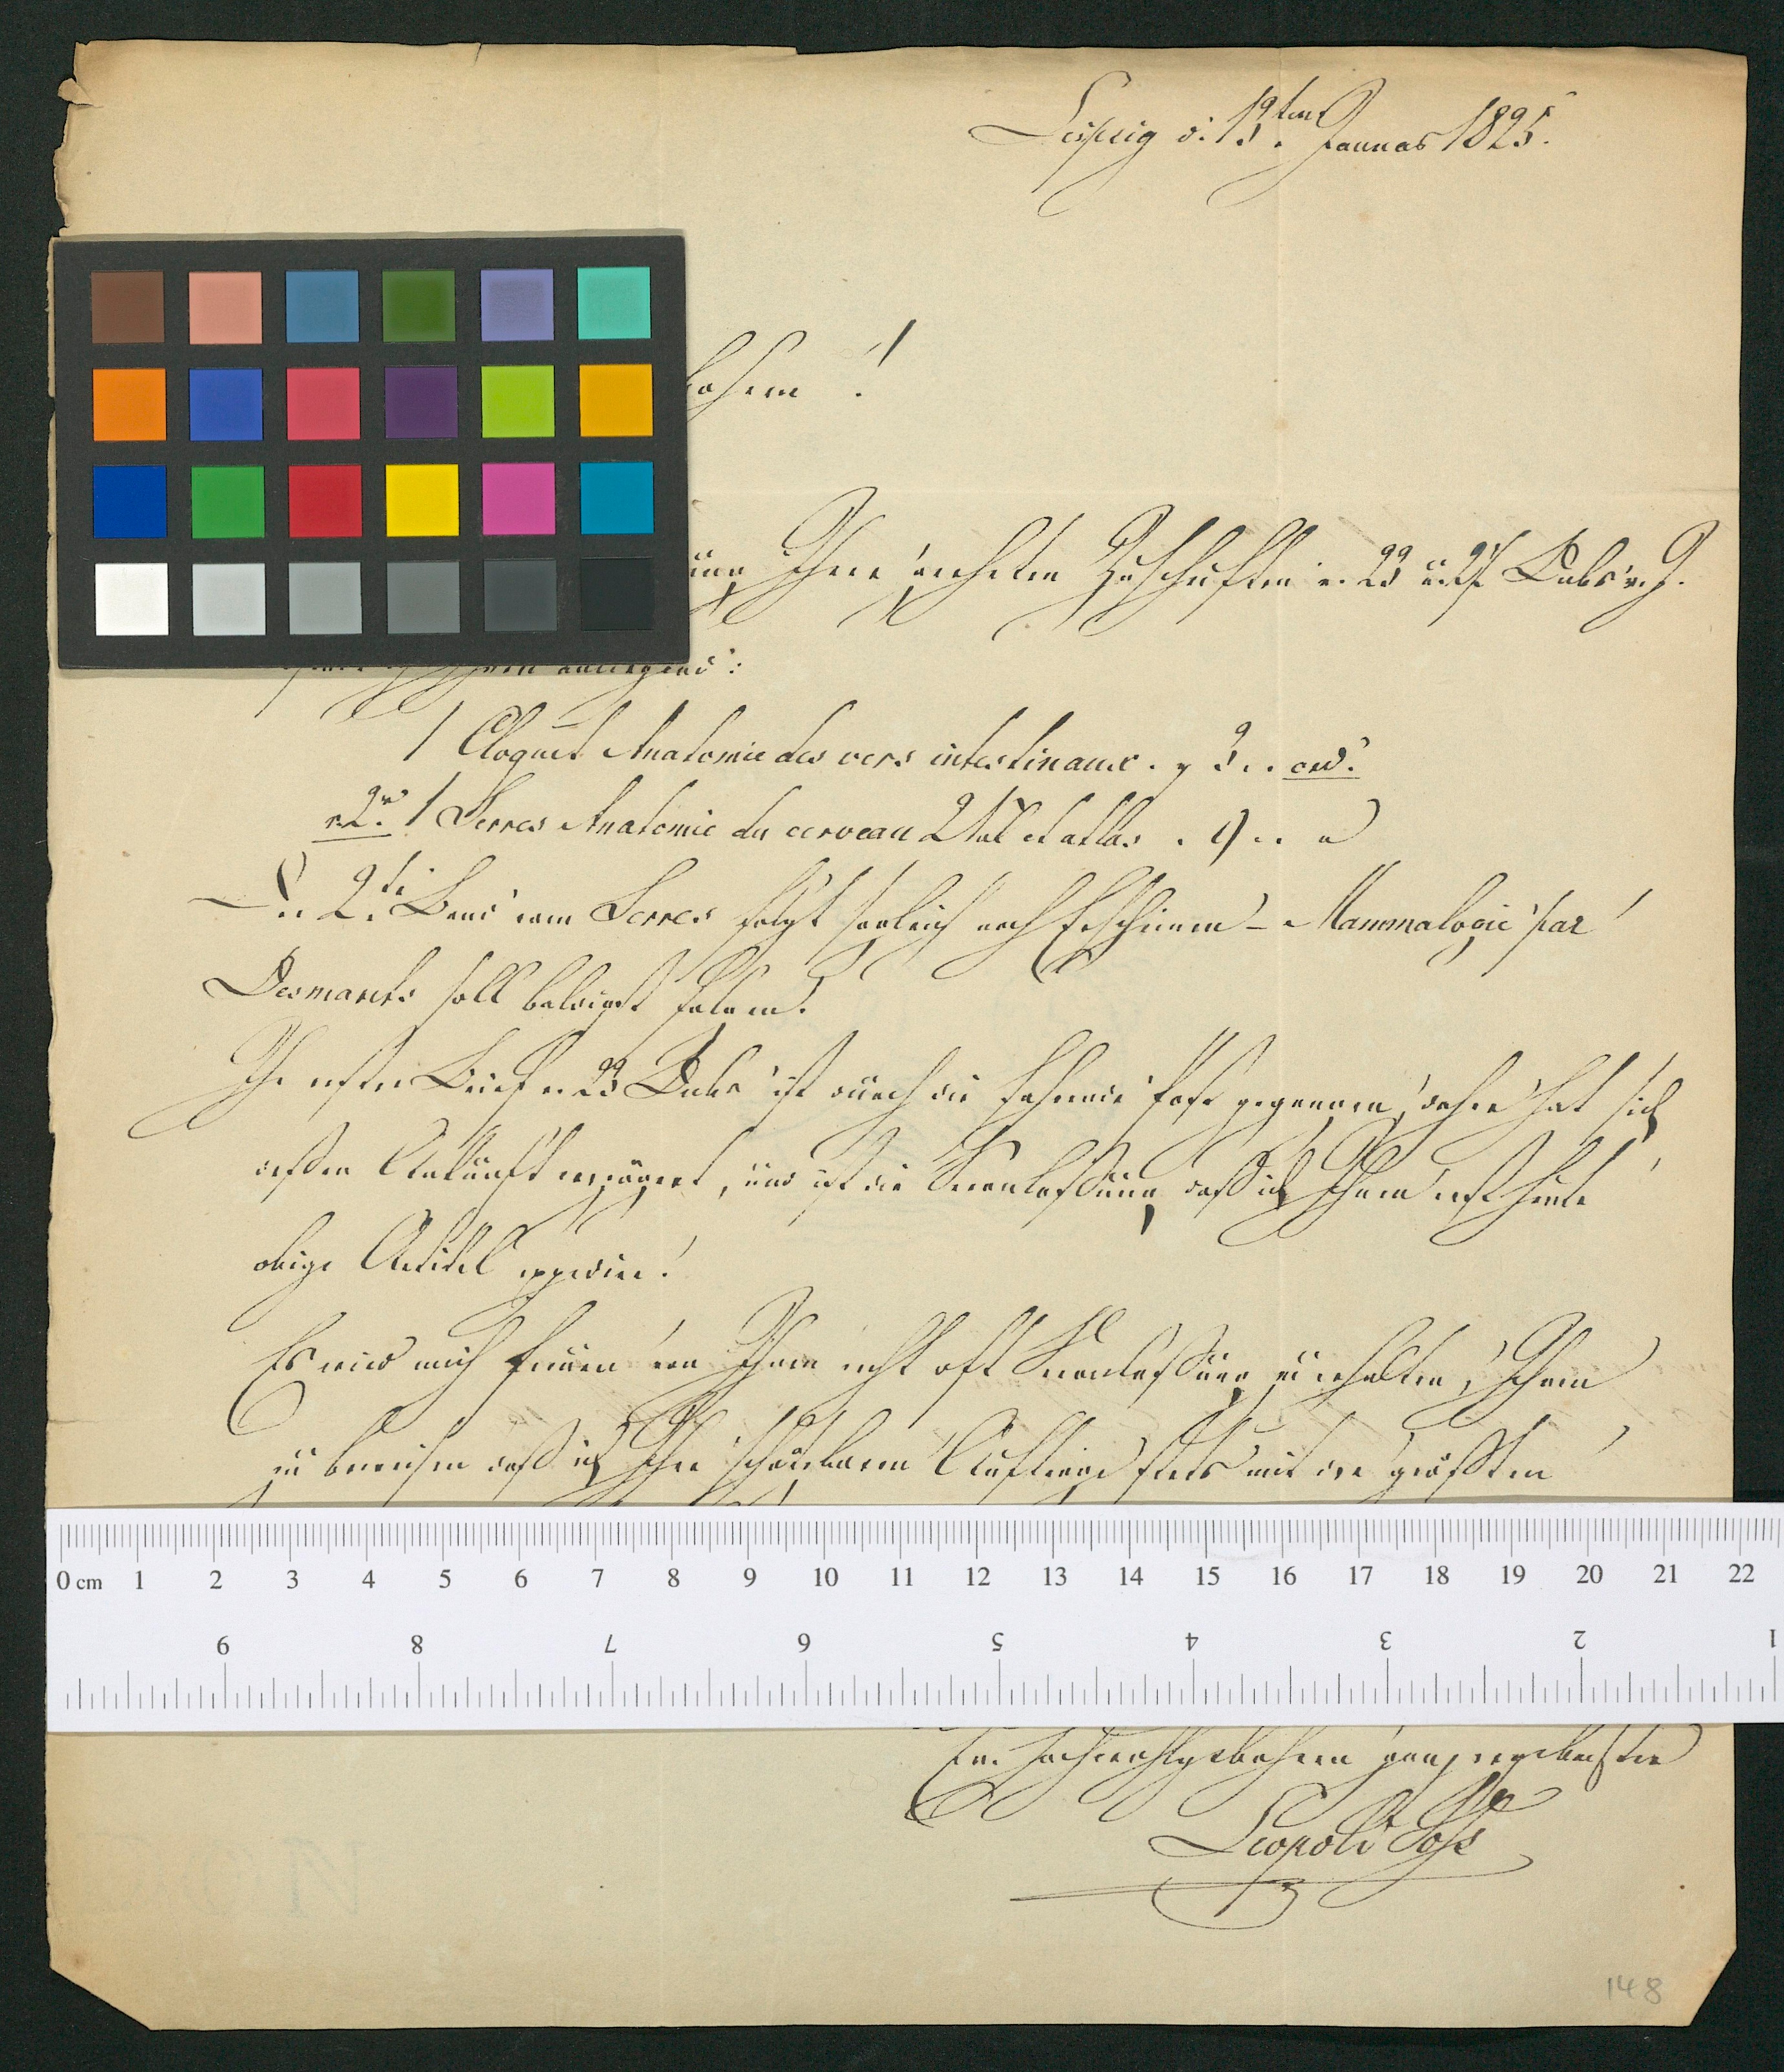 Leipzig d. 13ten Januar 1825.
bohren!
Ihrer geehrten Zuschriften v. 23 u. 27 Decbr v. J.
anliegend:
1 Cloquet Anatomie des vers intestinaux. 3 . .
1 Serres Anatomie du cerveau 2 Vol et atlas . 9 . .
Der 2te Band von Serres folgt sogleich nach Erscheinen – Mammalogie par
Desmarets soll baldigst folgen.
Ihr erster Brief v. 23 Decbr ist durch die fahrende Post gegangen, daher hat sich
dessen Ankunft verzögert, und ist die Veranlassung daß ich Ihnen erst heute
obige Artikel expedire!
Es wird mich freuen von Ihnen recht oft Veranlassung zu erhalten, Ihnen
zu beweisen daß ich Ihre schätzbaren Aufträge stets mit der größten
0 cm 1 2 3 4 5 6 7 8 9 10 11 12 13 14 15 16 17 18 19 20 21 22
9 8 7 6 5 4 3 2 1
Ew. Hochwohlgebohren ganz ergebenster
Leopold Voß
148